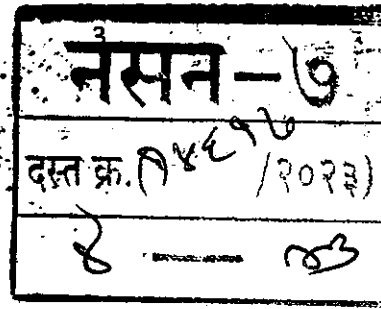 नसन-७
दस्त क्र. (१४६१७/२०२३)
४